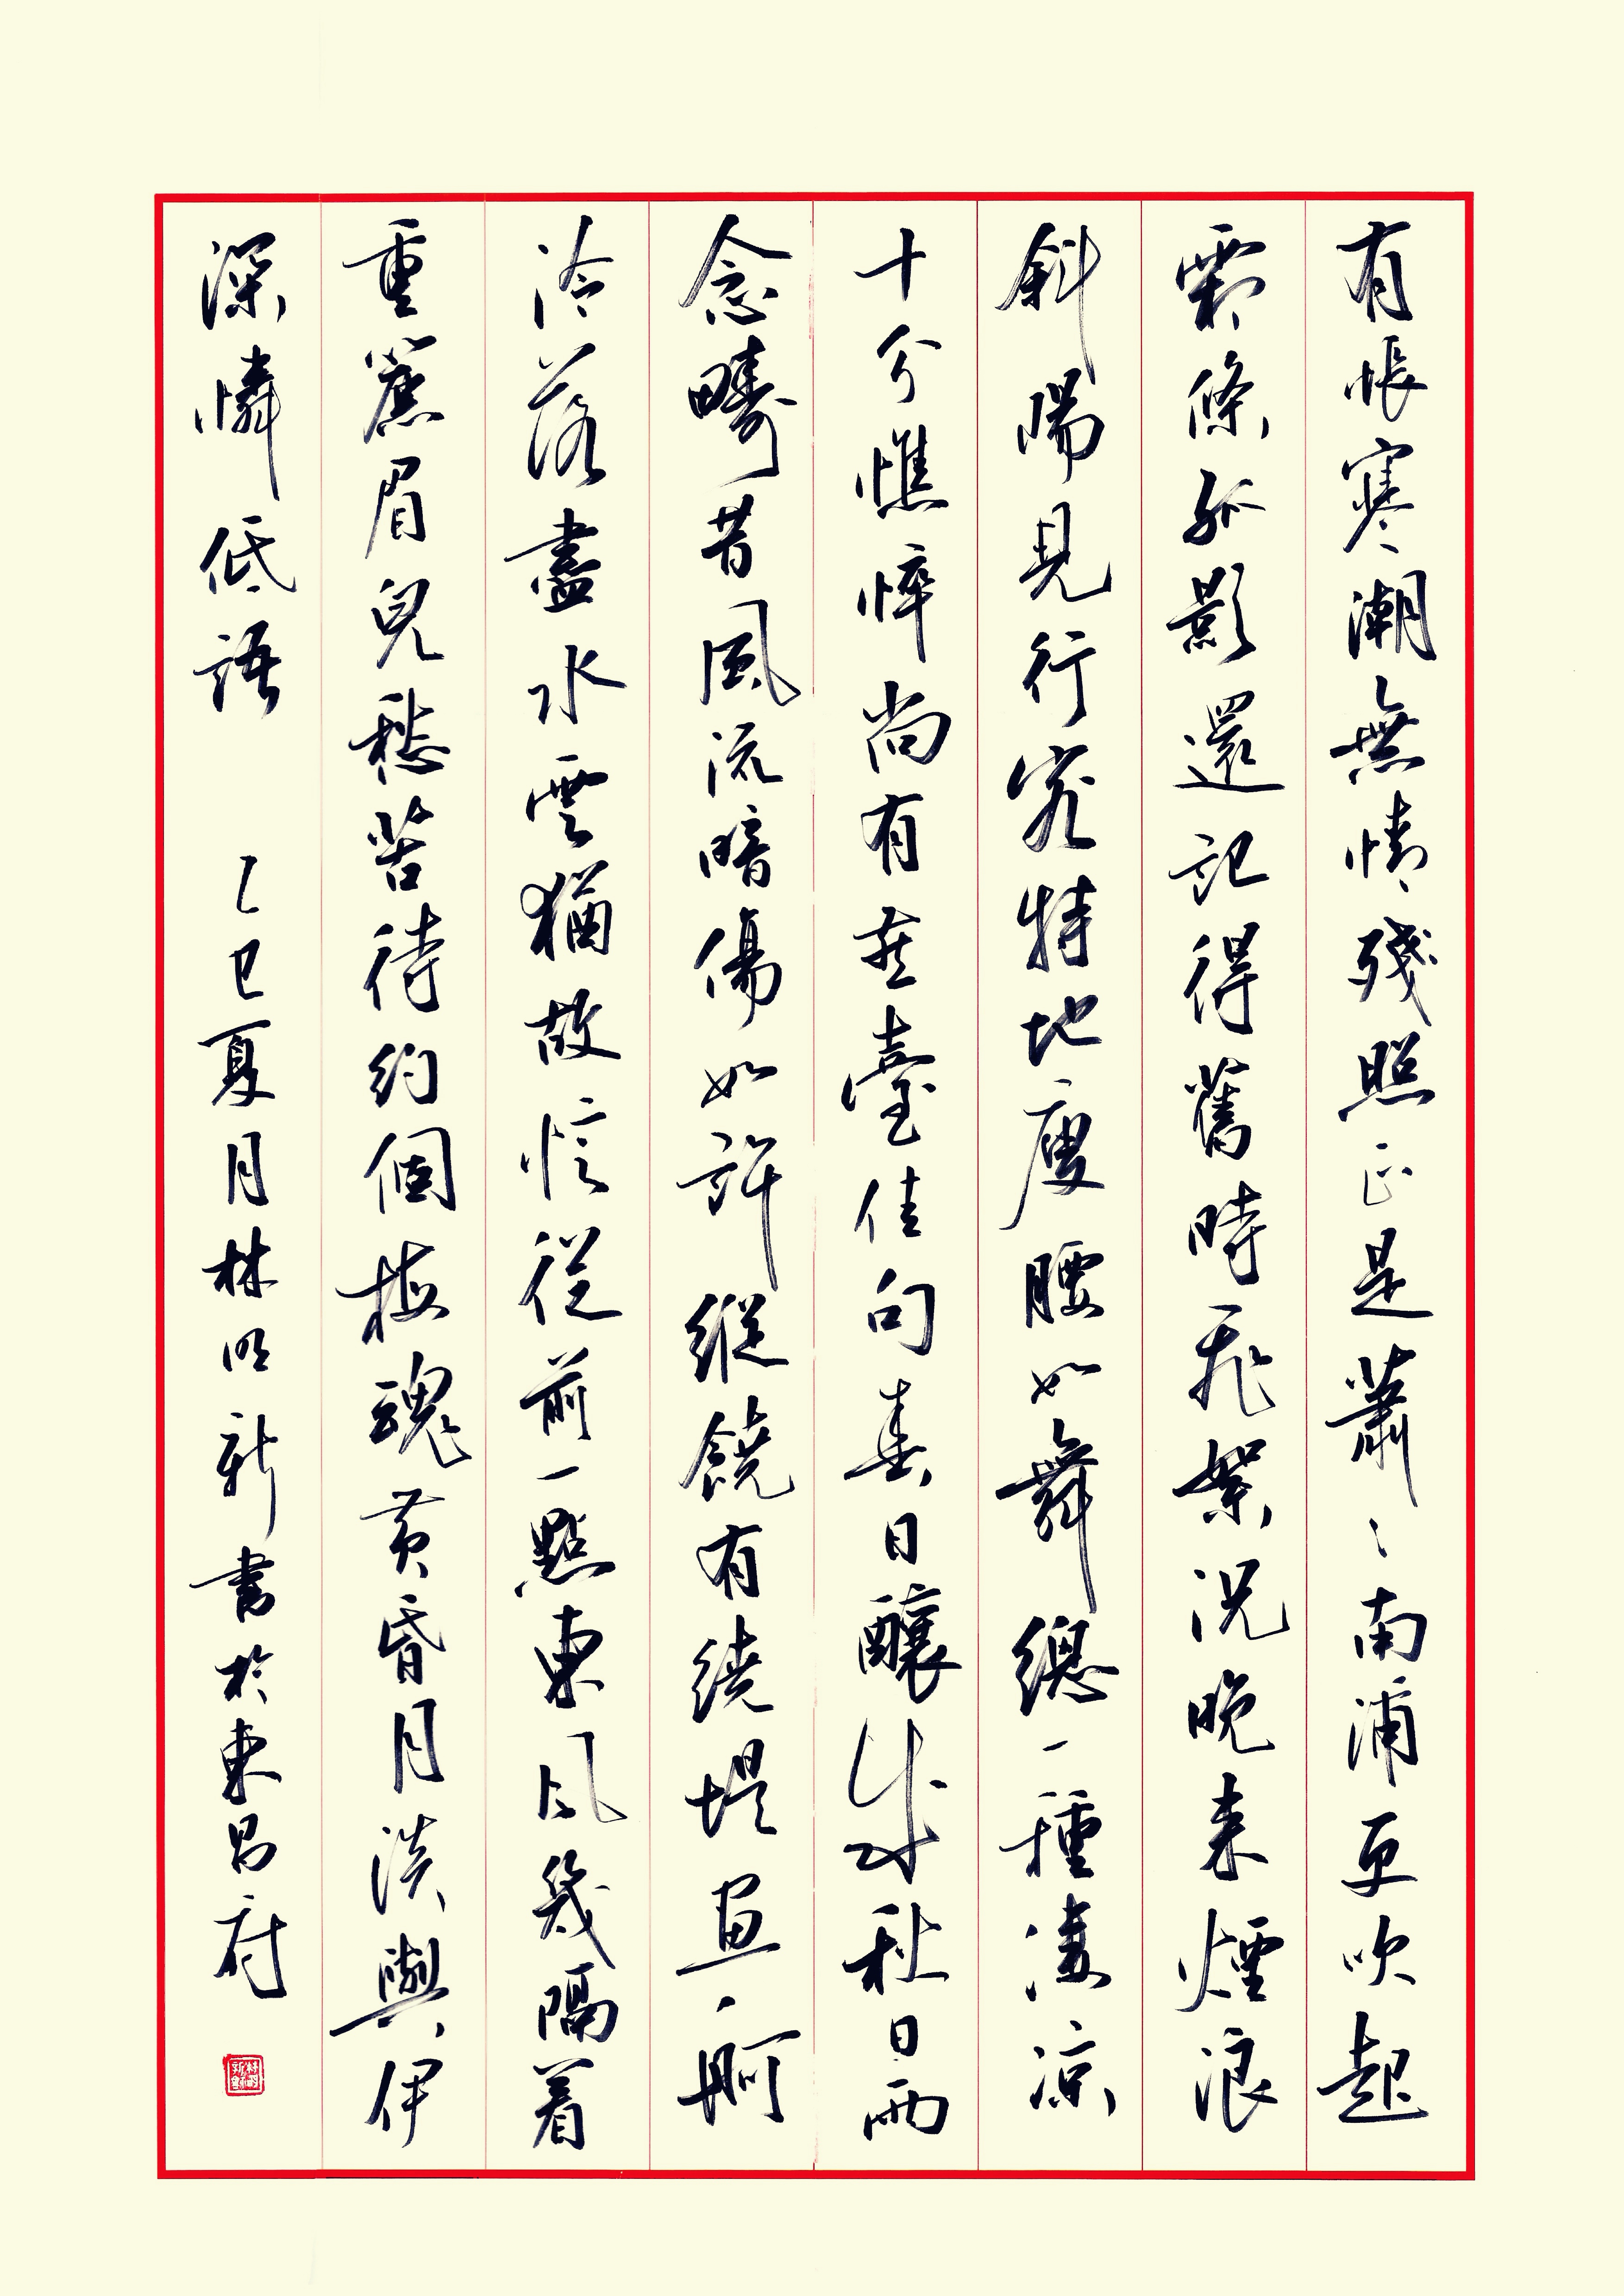 有悵寒潮無情殘照正是蕭〻南浦更吹起
霜條孤影還記得舊時飛絮況晚来煙浪
斜陽見行客特地瘦腰如舞總一種凄涼
十分憔悴尚有燕臺佳句春日釀成秋日雨
念疇昔風流暗傷如許縱饒有繞堤畫舸
冷落盡水雲猶故憶從前一點東風幾隔着
重簾眉兒愁苦待約個梅魂黃昏月淡與伊
深憐低語 乙巳夏月林明新書於東昌府